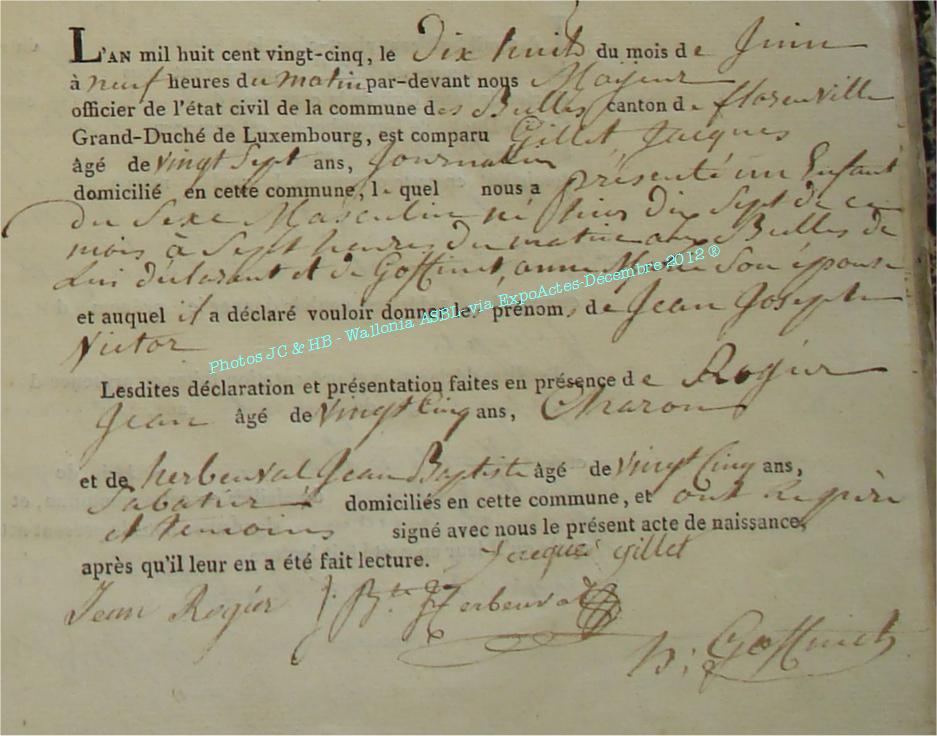 L'AN mil huit cent vingt-cinq, le Dix huit du mois de Juin
à neuf heures du matin par-devant nous Mayeur
officier de l'état civil de la commune des Bulles canton de florenville
Grand-Duché de Luxembourg, est comparu Gillet, Jacques
âgé de vingt Sept ans, Journalier
domicilié en cette commune, le quel nous a présenté un Enfant
du Sexe Masculin né hier dix Sept de ce
mois à Sept heures du matin aux Bulles de
Lui déclarant et de Goffinet, anne Son épouse
et auquel il a déclaré vouloir donner les prénoms de Jean Joseph
Victor
Photos JC & HB - Wallonia ASBL via ExpoActes-Décembre 2012 ®
Lesdites déclaration et présentation faites en présence de Rogier
Jean âgé de vingt Cinq ans, Charon
et de herbeuval Jean Baptiste âgé de vingt Cinq ans,
Sabatier domiciliés en cette commune, et ont
et temoins signé avec nous le présent acte de naissance,
après qu'il leur en a été fait lecture. Jacques gillet
Jean Rogier J. Bte Herbeuval
Goffinet